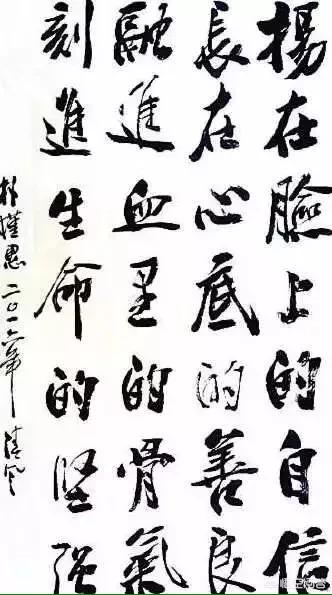 揚在臉上的自信
長在心底的善良
融進血里的骨氣
刻進生命的堅强
朴槿惠二〇一六年清风